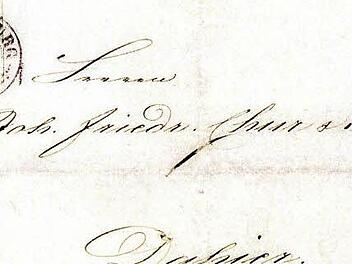 Herren
Joh. Friedr. Chur &
Dahier.